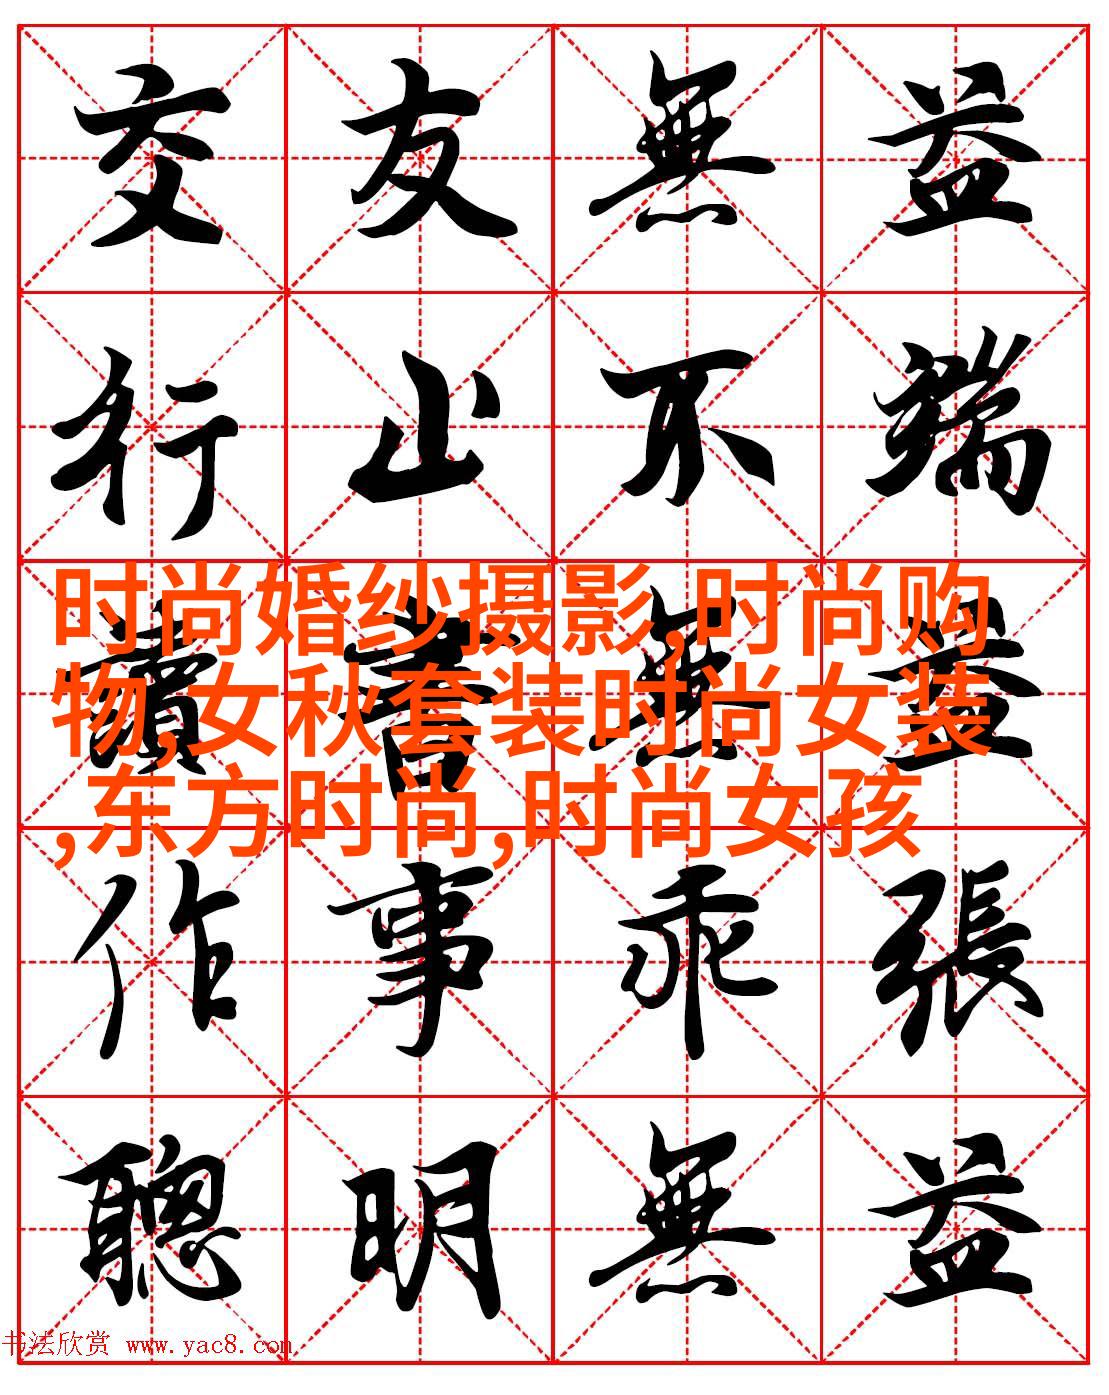 交友無益
行止不端
讀書無益
时尚婚纱摄影,时尚购
物,女秋套装时尚女装
,东方时尚,时尚女孩
作事乖張
聰明無益
书法欣赏 www.yac8.com